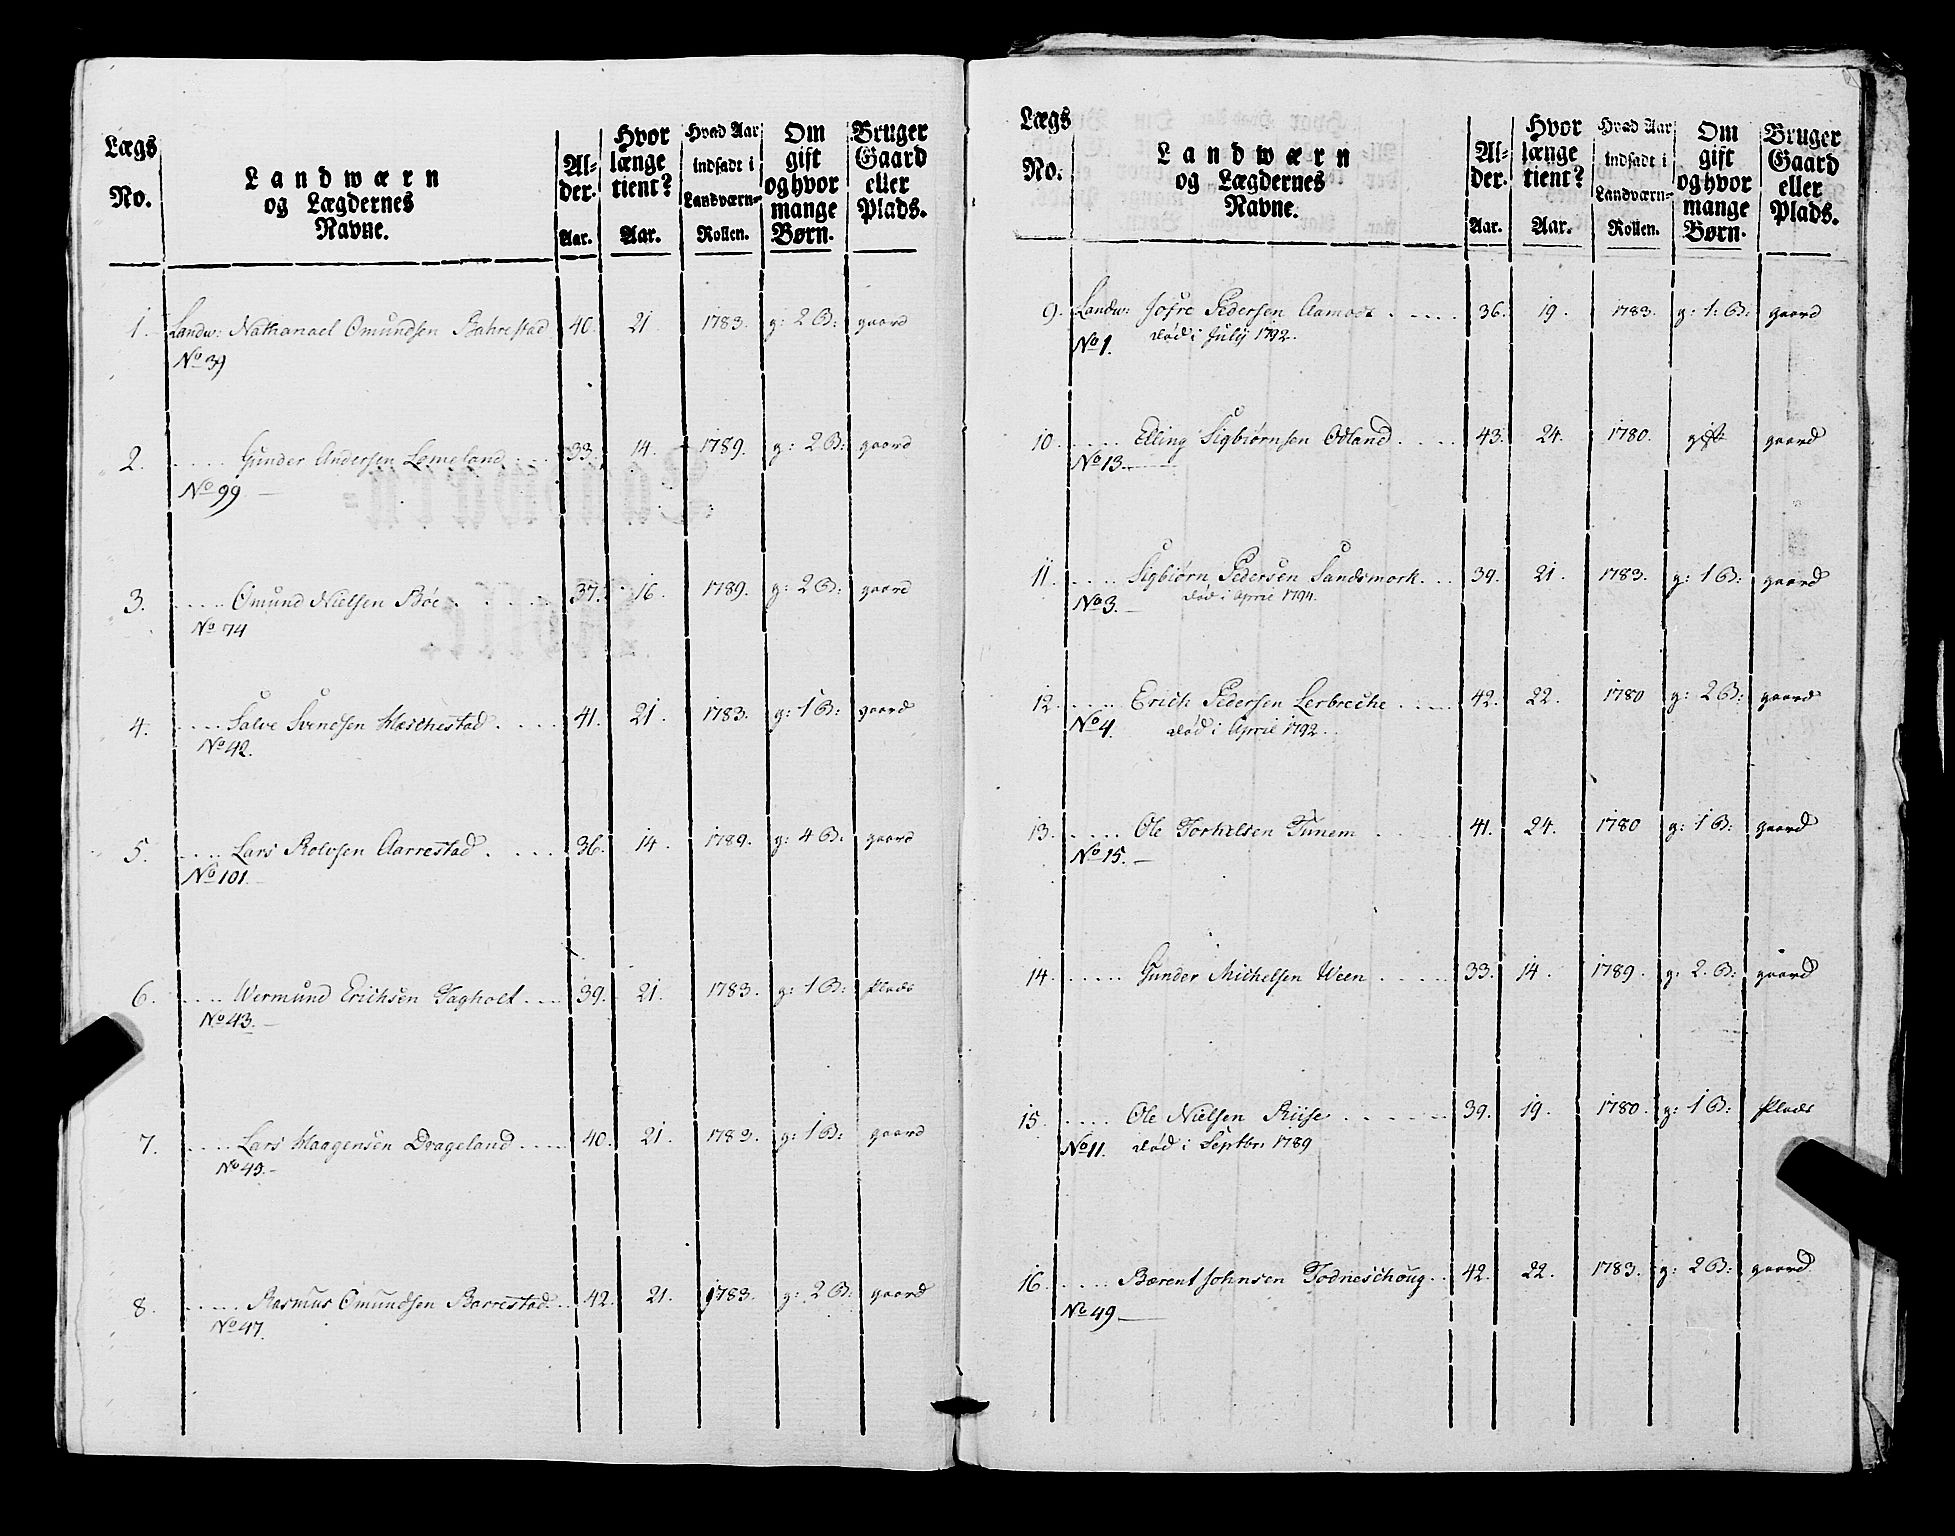 Lægs
No.
Landwærn
og Lægdernes
Navne.
Al-
der.
Aar.
Hvor
længe
tient?
Aar.
Hvad Aar
indsadt i
Landværn-
Rollen.
Om
gift
og hvor
mange
Børn.
Bruger
Gaard
eller
Plads.
1. Landw: Nathanael Omundsen Bahrestad 40. 21. 1783. g: 2 B: gaard
No 39
2. Gunder Andersen Lomeland 33. 14. 1789. g: 2 B: gaard
No 99
3. Omund Nielsen Böe 37. 16. 1789. g: 2 B: gaard
No 74
4. Salve Svendsen Hæschestad 41. 21. 1783. g: 1 B: gaard
No 42.
5. Lars Rolvsen Aarrestad 36. 14. 1789. g: 4 B: gaard
No 101.
6. Wermund Erichsen Tagholt 39. 21. 1783. g: 1 B: Plads
No 43.
7. Lars Haagensen Drageland 40. 21. 1783. g: 1 B: gaard
No 45.
8. Rasmus Omundsen Barrestad 42. 21. 1783. g: 2 B: gaard
No 47.
Lægs
No.
Landwærn
og Lægdernes
Navne.
Al-
der.
Aar.
Hvor
længe
tient?
Aar.
Hvad Aar
indsadt i
Landværn-
Rollen.
Om
gift
og hvor
mange
Børn.
Bruger
Gaard
eller
Plads.
9. Landw: Josre Pedersen Aamodt 36. 19. 1783. g: 1: B: gaard
No 1. död i July 1792.
10. Elling Sigbiørnsen Odland 43. 24. 1780. gift gaard
No 13.
11. Sigbiørn Pedersen Sandsmork 39. 21. 1783. g: 1 B: gaard
No 3. död i April 1794.
12. Erich Pedersen Lerbreche 42. 22. 1780 g: 2 B: gaard
No 4. död i April 1792.
13. Ole Torkelsen Tunem 41. 24. 1780 g: 1 B: gaard
No 15.
14. Gunder Michelsen Ween 33. 14. 1789. g: 2. B: gaard
15. Ole Nielsen Riise 39. 19. 1780. g: 1 B: Plads
No 11. död i Septbr 1789
16. Bærent Johnsen Todneschoug 42. 22. 1783. g: 2 B: gaard
No 49